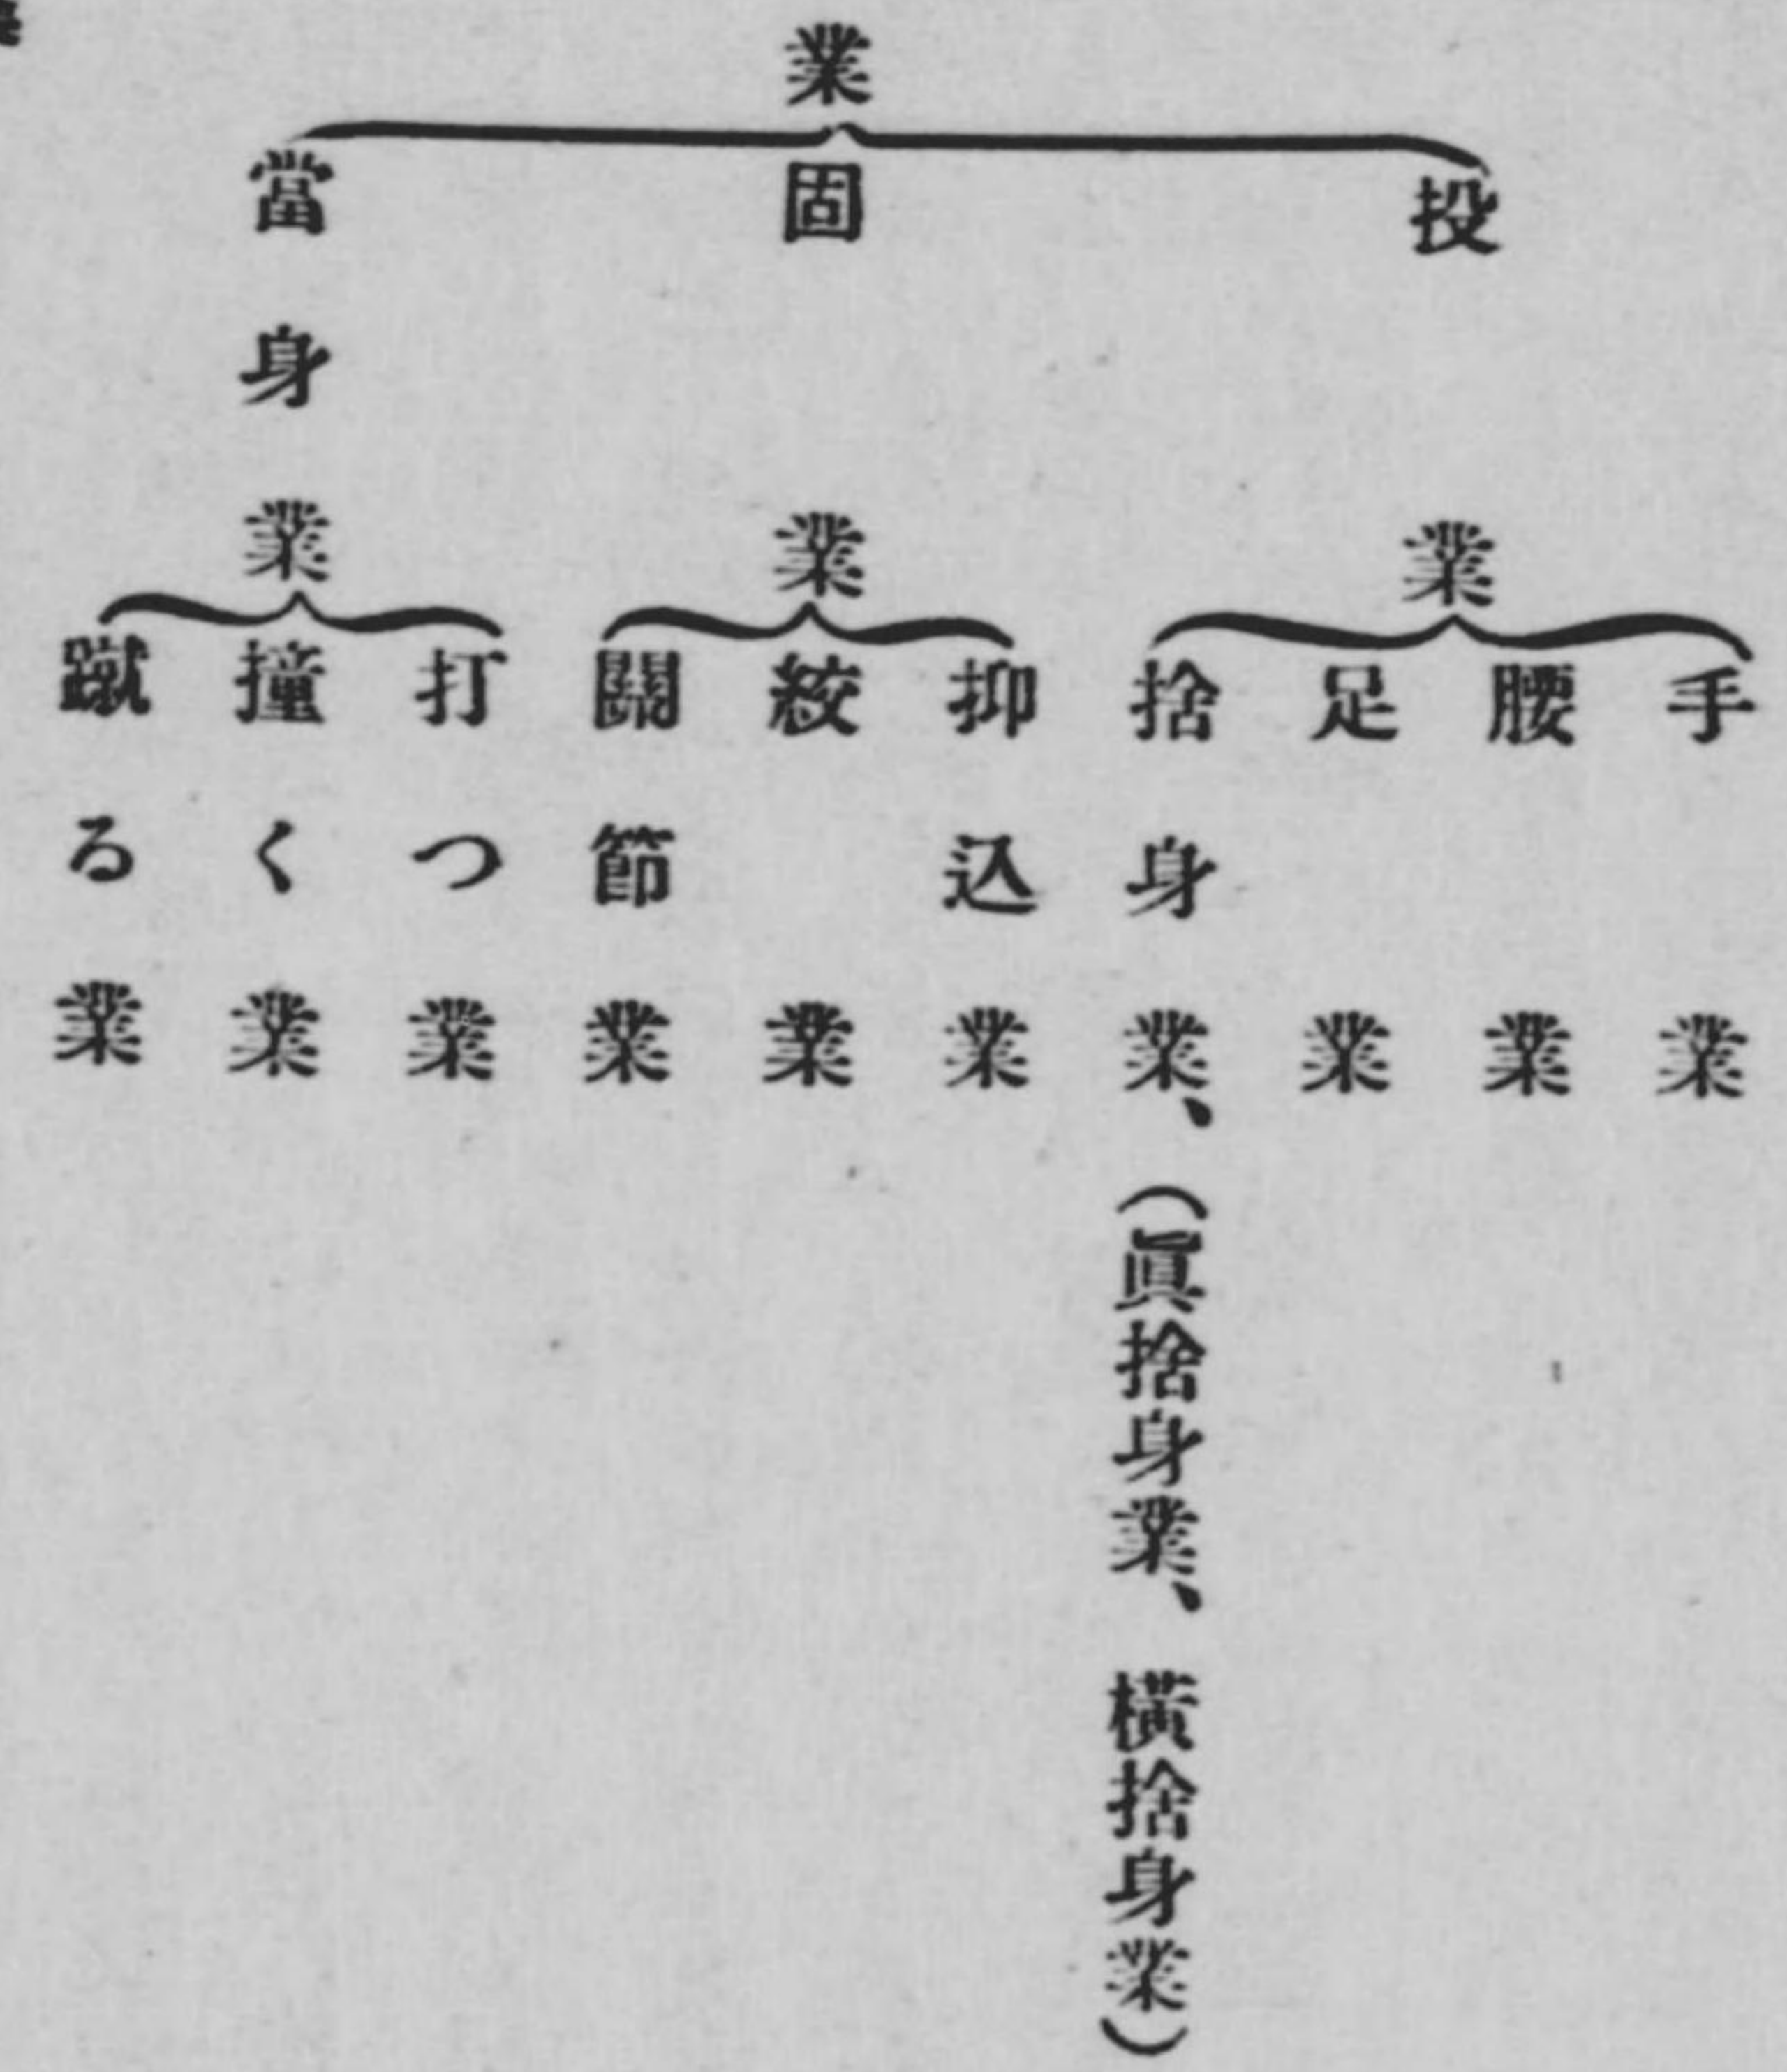 業
投業
手業
腰業
足業
捨身業、(眞捨身業、橫捨身業)
固業
抑込業
絞業
關節業
當身業
打つ業
撞く業
蹴る業